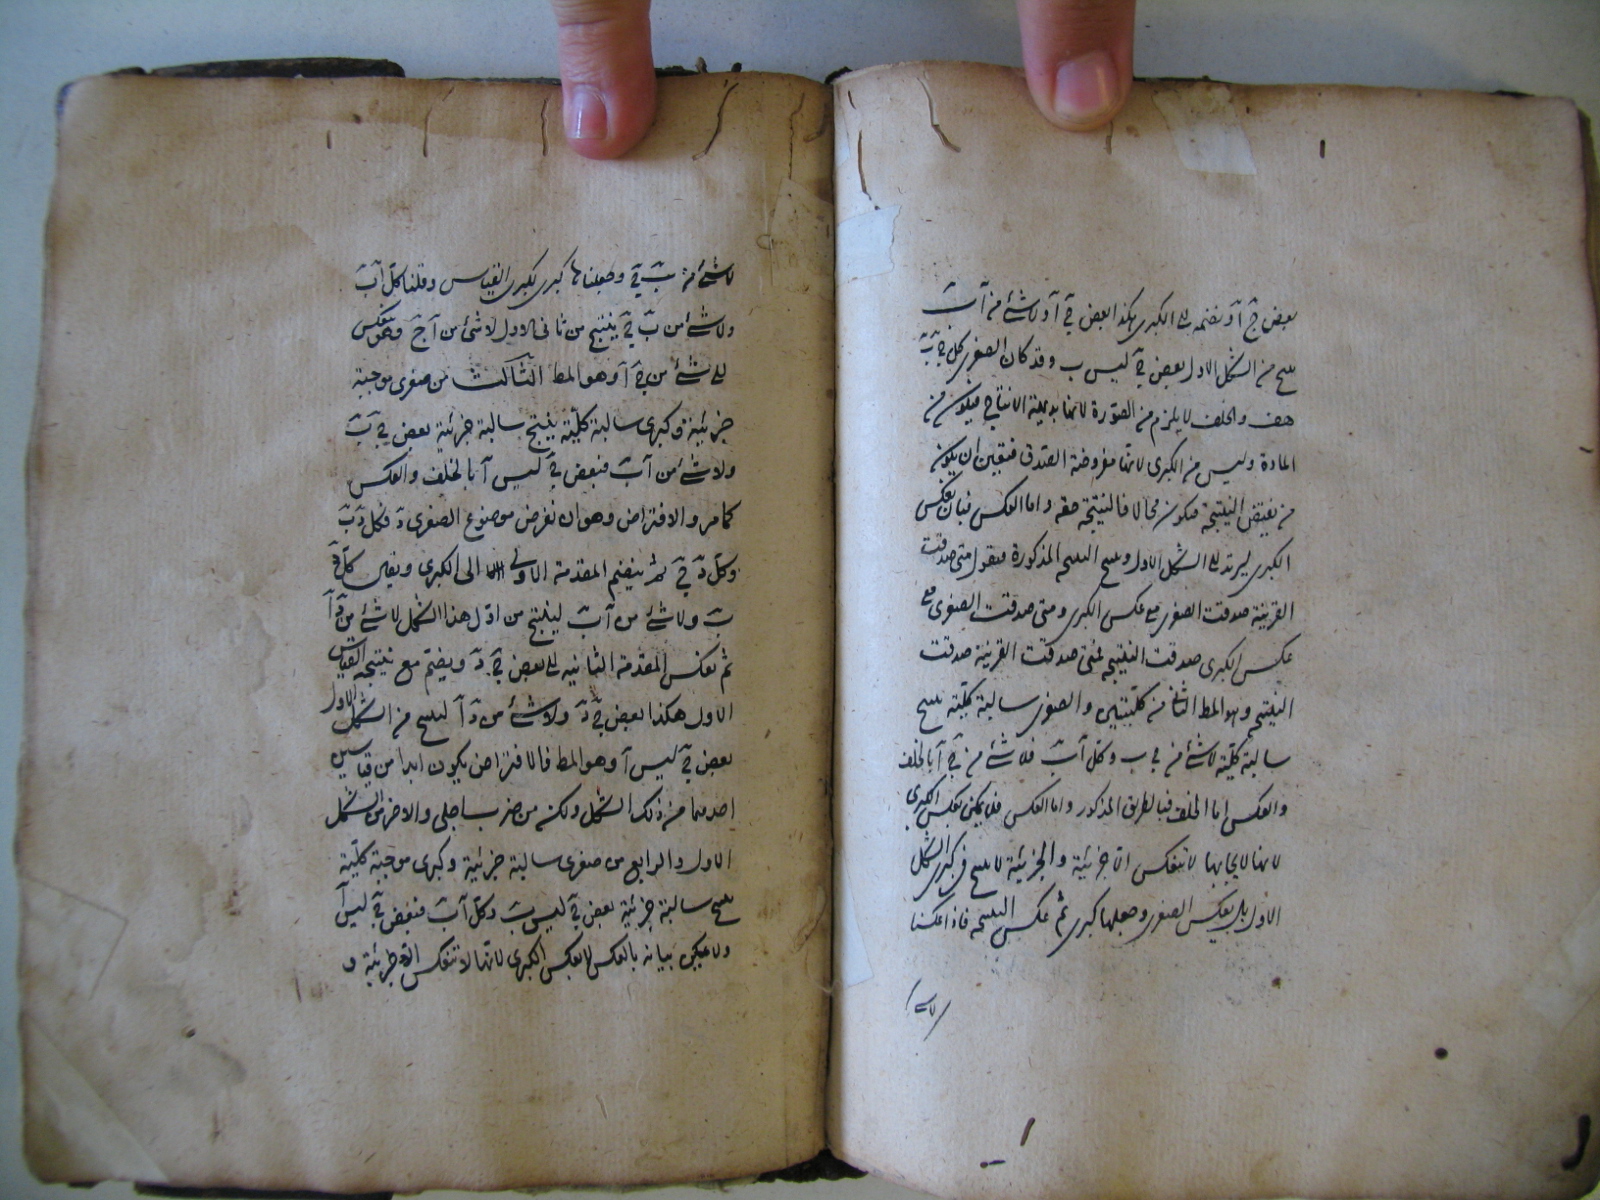 بعض ج آ ونضمه الى الكبرى هكذا بعض ج آ ولا شئ من آ ب
ينتج من الشكل الاول بعض ج ليس ب وقد كان الصغرى كل ج ب
هف والخلف لا يلزم من الصورة لانها بديهية الانتاج فيكون من
المادة وليس من الكبرى لانها مفروضة الصدق فتعين ان يكون
من نقيض النتيجة فيكون محالا فالنتيجة حقه واما العكس فبان نعكس
الكبرى ليرتد الى الشكل الاول وينتج النتيجة المذكورة فنقول متى صدقت
القرينة صدقت الصغرى مع عكس الكبرى ومتى صدقت الصغرى مع
عكس الكبرى صدقت النتيجة فمتى صدقت القرينة صدقت
النتيجة وهو المط الثانى من كليتين والصغرى سالبة كلية ينتج
سالبة كلية لا شئ من ج ب وكل آ ب فلا شئ من ج آ بالخلف
والعكس اما الخلف فبالطريق المذكور واما العكس فلا يمكن بعكس الكبرى
لانها لايجابها لا تنعكس الا جزئية والجزئية لا ينتج فى كبرى الشكل
الاول بل بعكس الصغرى وجعلها كبرى ثم عكس النتيجة فاذا عكسنا
لا شئ
لا شئ من ب ج وجعلناها كبرى لكبرى القياس وقلنا كل آ ب
ولا شئ من ب ج ينتج من ثانى الاول لا شئ من آ ج وهو ينعكس
الى لا شئ من ج آ وهو المط الثالث من صغرى موجبة
جزئية وكبرى سالبة كلية ينتج سالبة جزئية بعض ج ب
ولا شئ من آ ب فبعض ج ليس آ بالخلف والعكس
كما مر والافتراض وهو ان نفرض موضوع الصغرى د فكل د ب
وكل د ج ثم ينضم المقدمة الاولى الى الكبرى كل د
ب ولا شئ من آ ب لينتج من اول هذا الشكل لا شئ من د آ
ثم نعكس المقدمة الثانية الى بعض ج د ويضم مع نتيجة القياس
الاول هكذا بعض ج د ولا شئ من د آ لينتج من الشكل الاول
بعض ج ليس آ وهو المط فالافتراض يكون ابدا من قياسين
احدهما من ذلك الشكل ولكن من ضرب اجلى والاخر من الشكل
الاول والرابع من صغرى سالبة جزئية وكبرى موجبة كلية
ينتج سالبة جزئية بعض ج ليس ب وكل آ ب فبعض ج ليس آ
ولا يمكن بيانه بالعكس لا بعكس الكبرى لانها لا تنعكس الا جزئية و